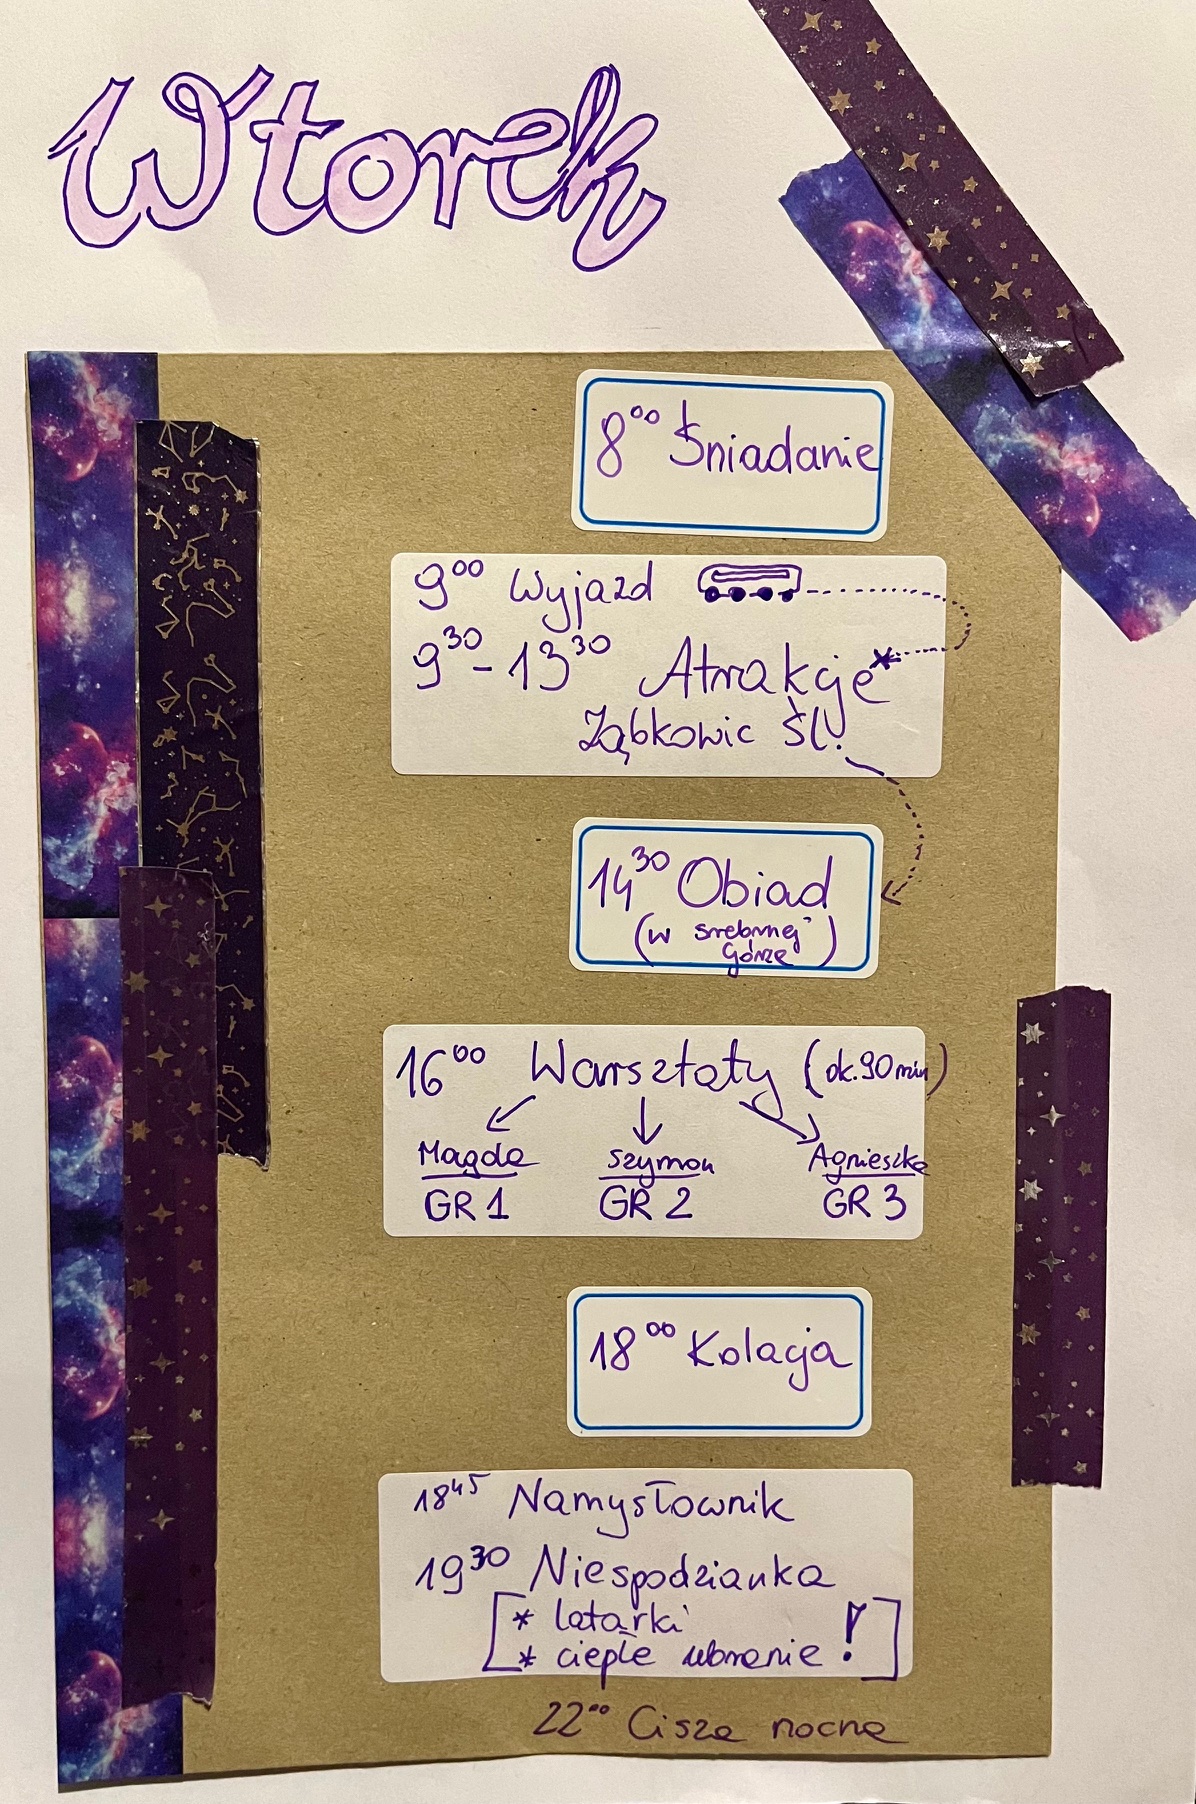 Wtorek
8⁰⁰ Śniadanie
9⁰⁰ Wyjazd
9³⁰-13³⁰ Atrakcje*
Ząbkowic Śl.
14³⁰ Obiad
(w srebrnej
górze)
16⁰⁰ Warsztaty (ok. 90 min)
Magda Szymon Agnieszka
GR 1 GR 2 GR 3
18⁰⁰ Kolacja
18⁴⁵ Namysłownik
19³⁰ Niespodzianka
[* latarki
* ciepłe ubranie !]
22⁰⁰ Cisza nocna